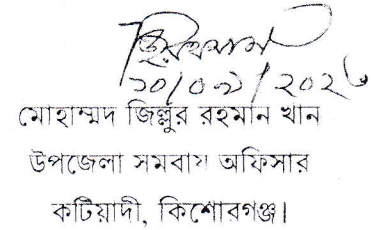 মোহাম্মদ জিল্লুর রহমান খান
উপজেলা সমবায় অফিসার
কটিয়াদী, কিশোরগঞ্জ।